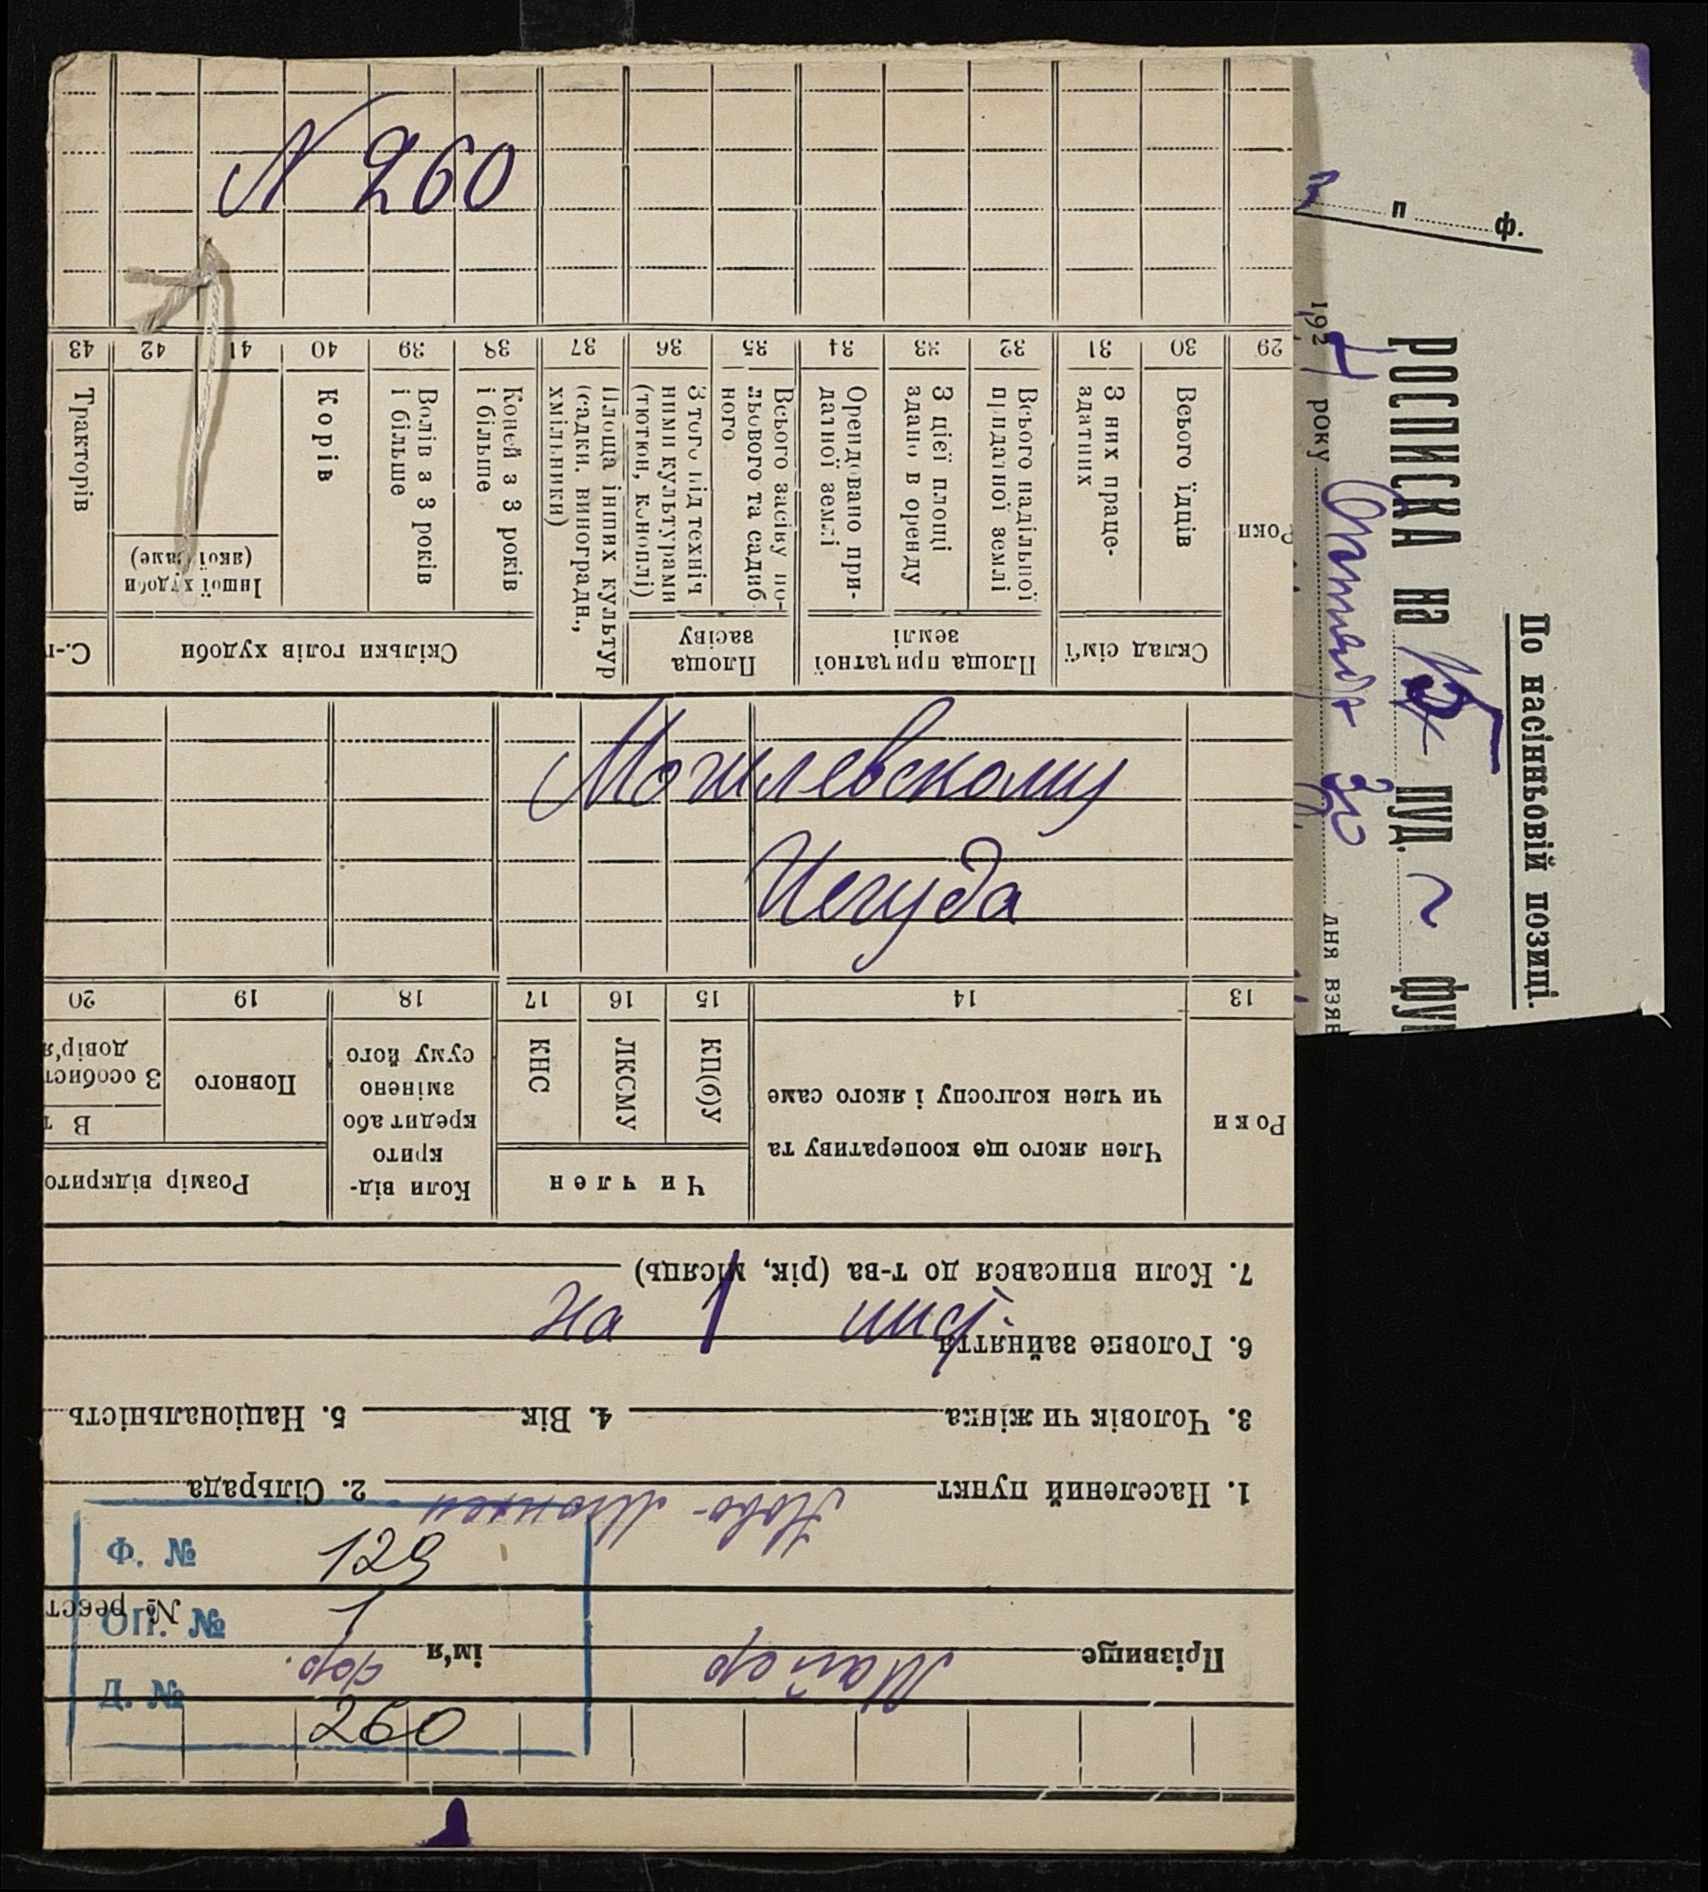 N 260
Могилевскому
Иегуда
на 1 лист
Ф. № 129
ОП. № 1
Д. № 260
Прізвище Майер ім'я
№ реєст
1. Населений пункт 2. Сільрада
3. Чоловік чи жінка 4. Вік 5. Національність
6. Головне зайняття
7. Коли вписався до т-ва (рік, місяць)
Роки
Член якого ще кооперативу та
чи член колгоспу і якого саме
Чи член
КП(б)У
ЛКСМУ
КНС
Коли від-
крито
кредит або
змінено
суму його
Розмір відкрито
Повного
В т
З особист
довір'я
13 14 15 16 17 18 19 20
Роки
Склад сім'ї
Всього їдців
З них праце-
здатних
Площа придатної
землі
Всього надільної
придатної землі
З цієї площі
здано в оренду
Орендовано при-
датної землі
Площа
засіву
Всього засіву по-
льового та садиб-
ного
З того під техніч
ними культурами
(тютюн, коноплі)
Площа інших культур
(садки, виноградн.,
хмільники)
Скільки голів худоби
Коней з 3 років
і більше
Волів з 3 років
і більше
Корів
Іншої худоби
(якої саме)
С.-г
Тракторів
29 30 31 32 33 34 35 36 37 38 39 40 41 42 43
По насінньовій позиці.
РОСПИСКА на 15 пуд. фун
1924 року Октября 30 дня взяв
п ф.